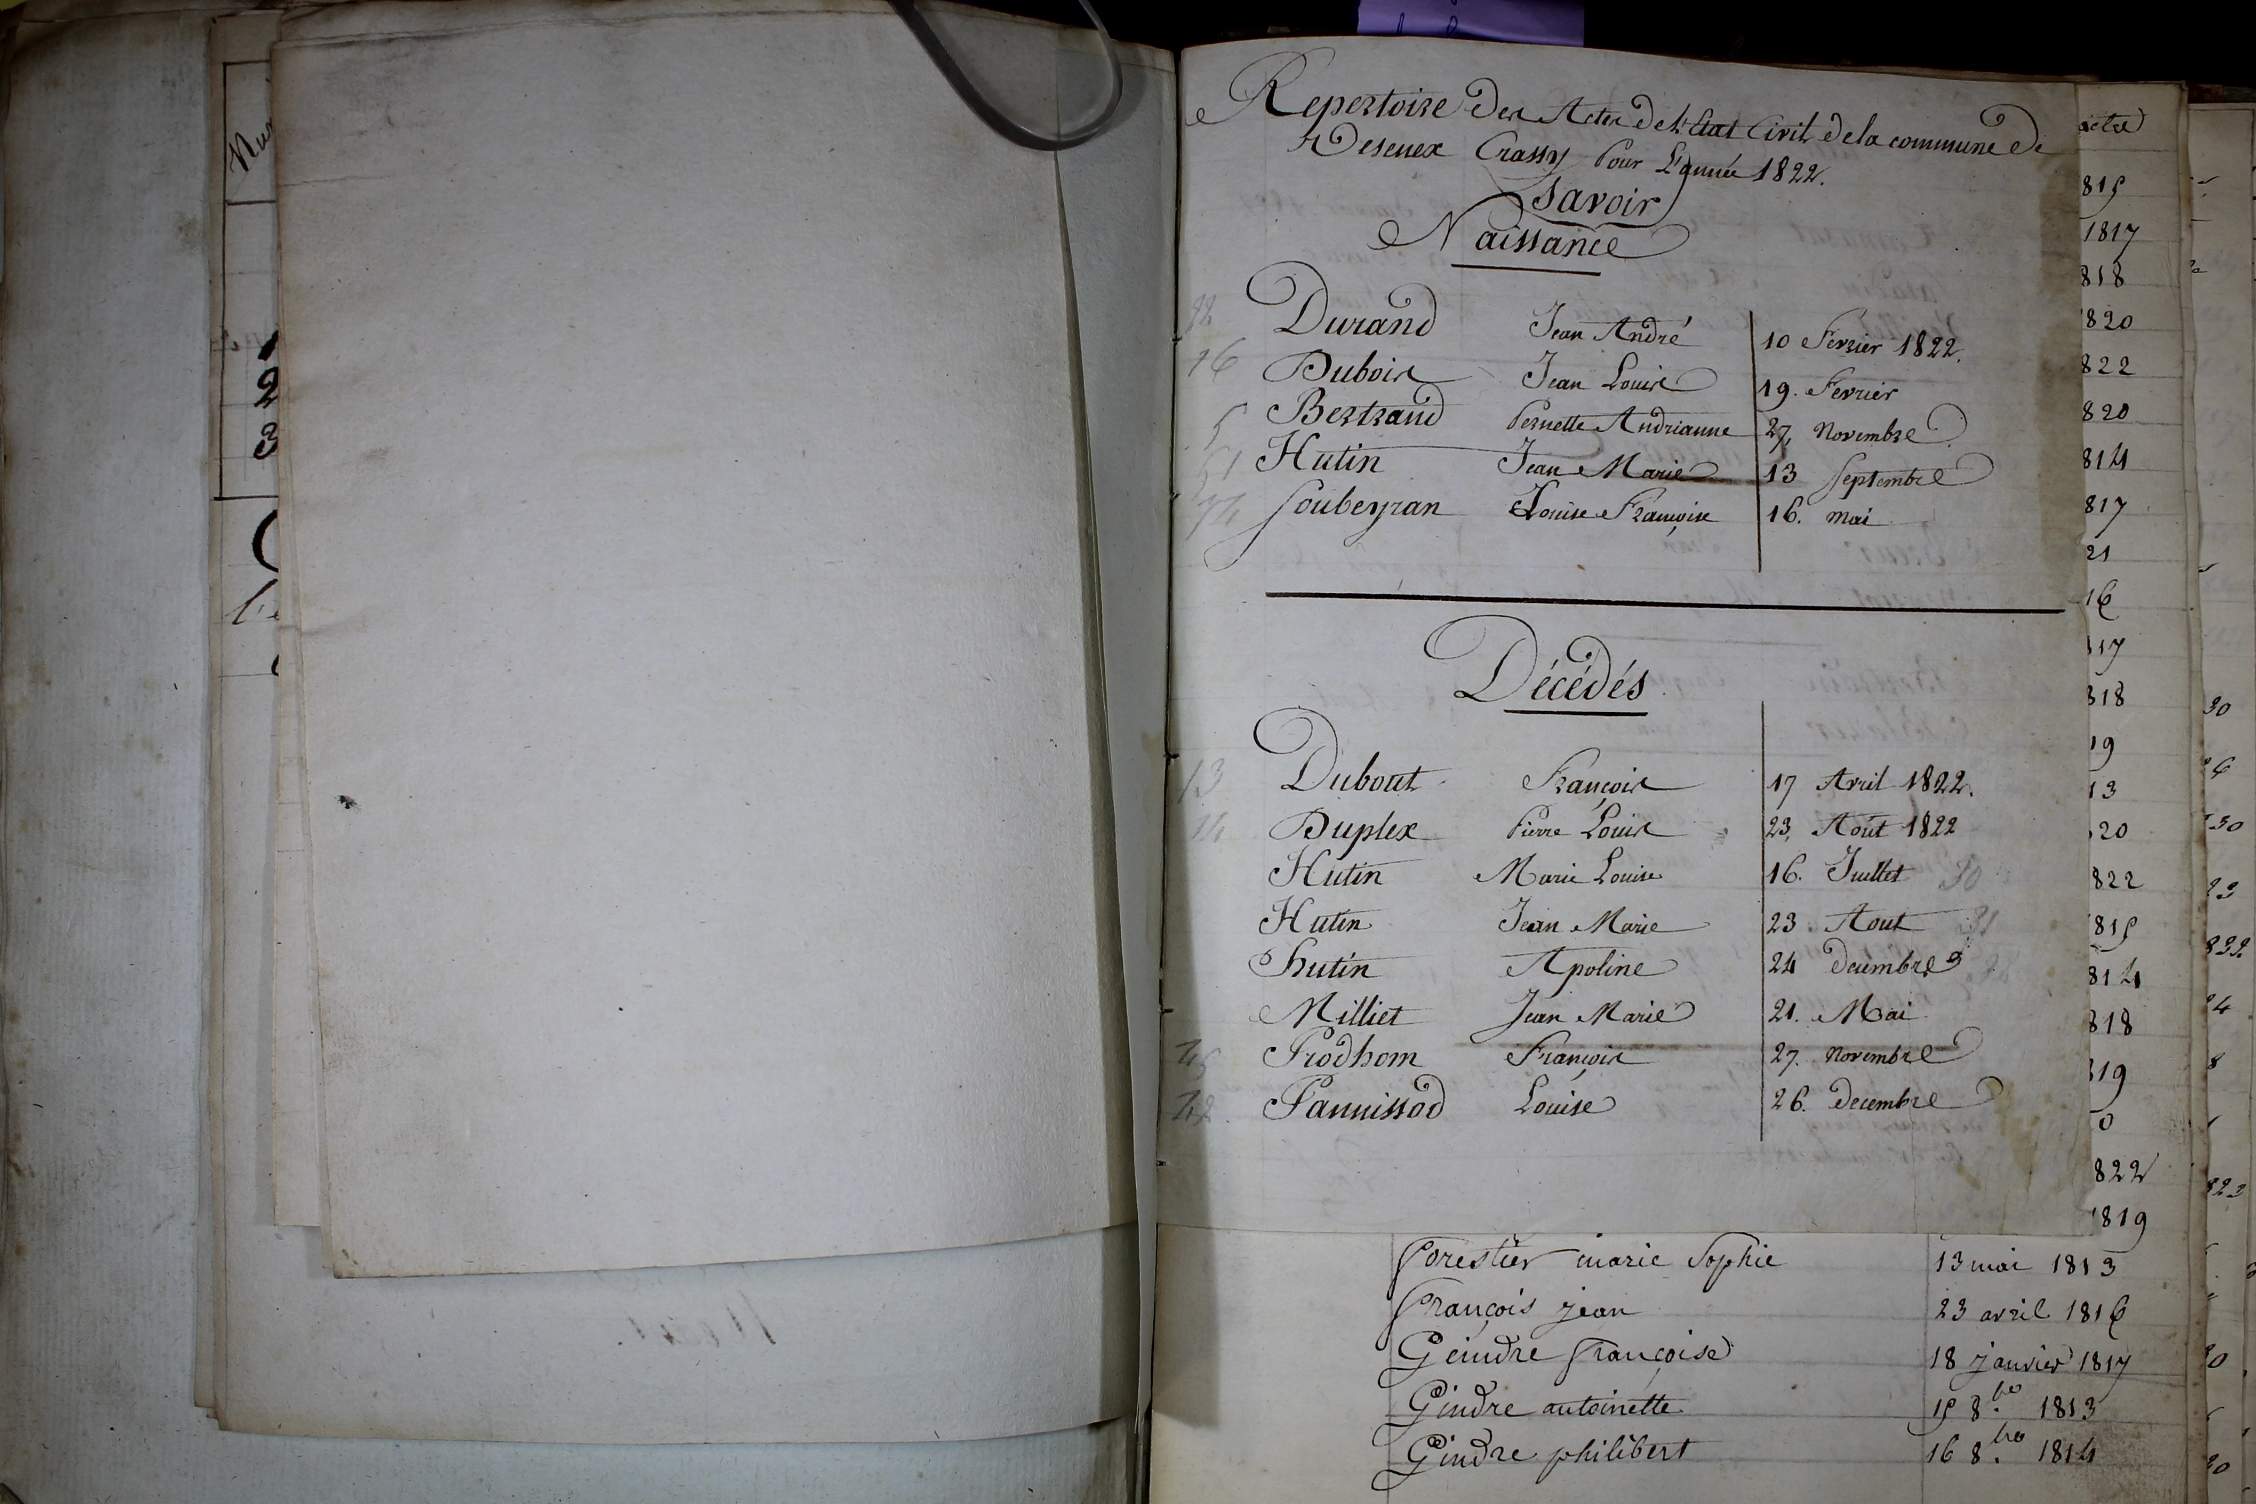 Repertoire Des Actes de l'Etat Civil de la commune de
Crassy Pour L'année 1822.
Savoir
Naissance
Durand Jean André 10 Fevrier 1822.
16 Dubois Jean Louis 19. Fevrier
5 Bertrand Pernette Andrianne 27, Novembre
51 Hutin Jean Marie 13 Septembre
74 Soubeyran Louise Françoise 16. mai
Décédés
13 Dubout François 17 Avril 1822.
14 Duplex Pierre Louis 23, Août 1822
Hutin Marie Louise 16. Juillet 30
Hutin Jean Marie 23 Aout 31
hutin Apoline 24 decembre
Milliet Jean Marie 21. Mai
45 Prodhom François 27. Novembre
42. Pannissod Louise 26. Decembre
forestier marie Sophie 13 mai 1813
françois jean 23 avril 1816
Geindre françoise 18 janvier 1817
Gindre antoinette 15 8.bre 1813
Gindre philibert 16 8.bre 1814
2
3
1817
818
820
822
820
814
817
21
16
117
318
19
13
20
822
815
814
818
319
0
822
1819
30